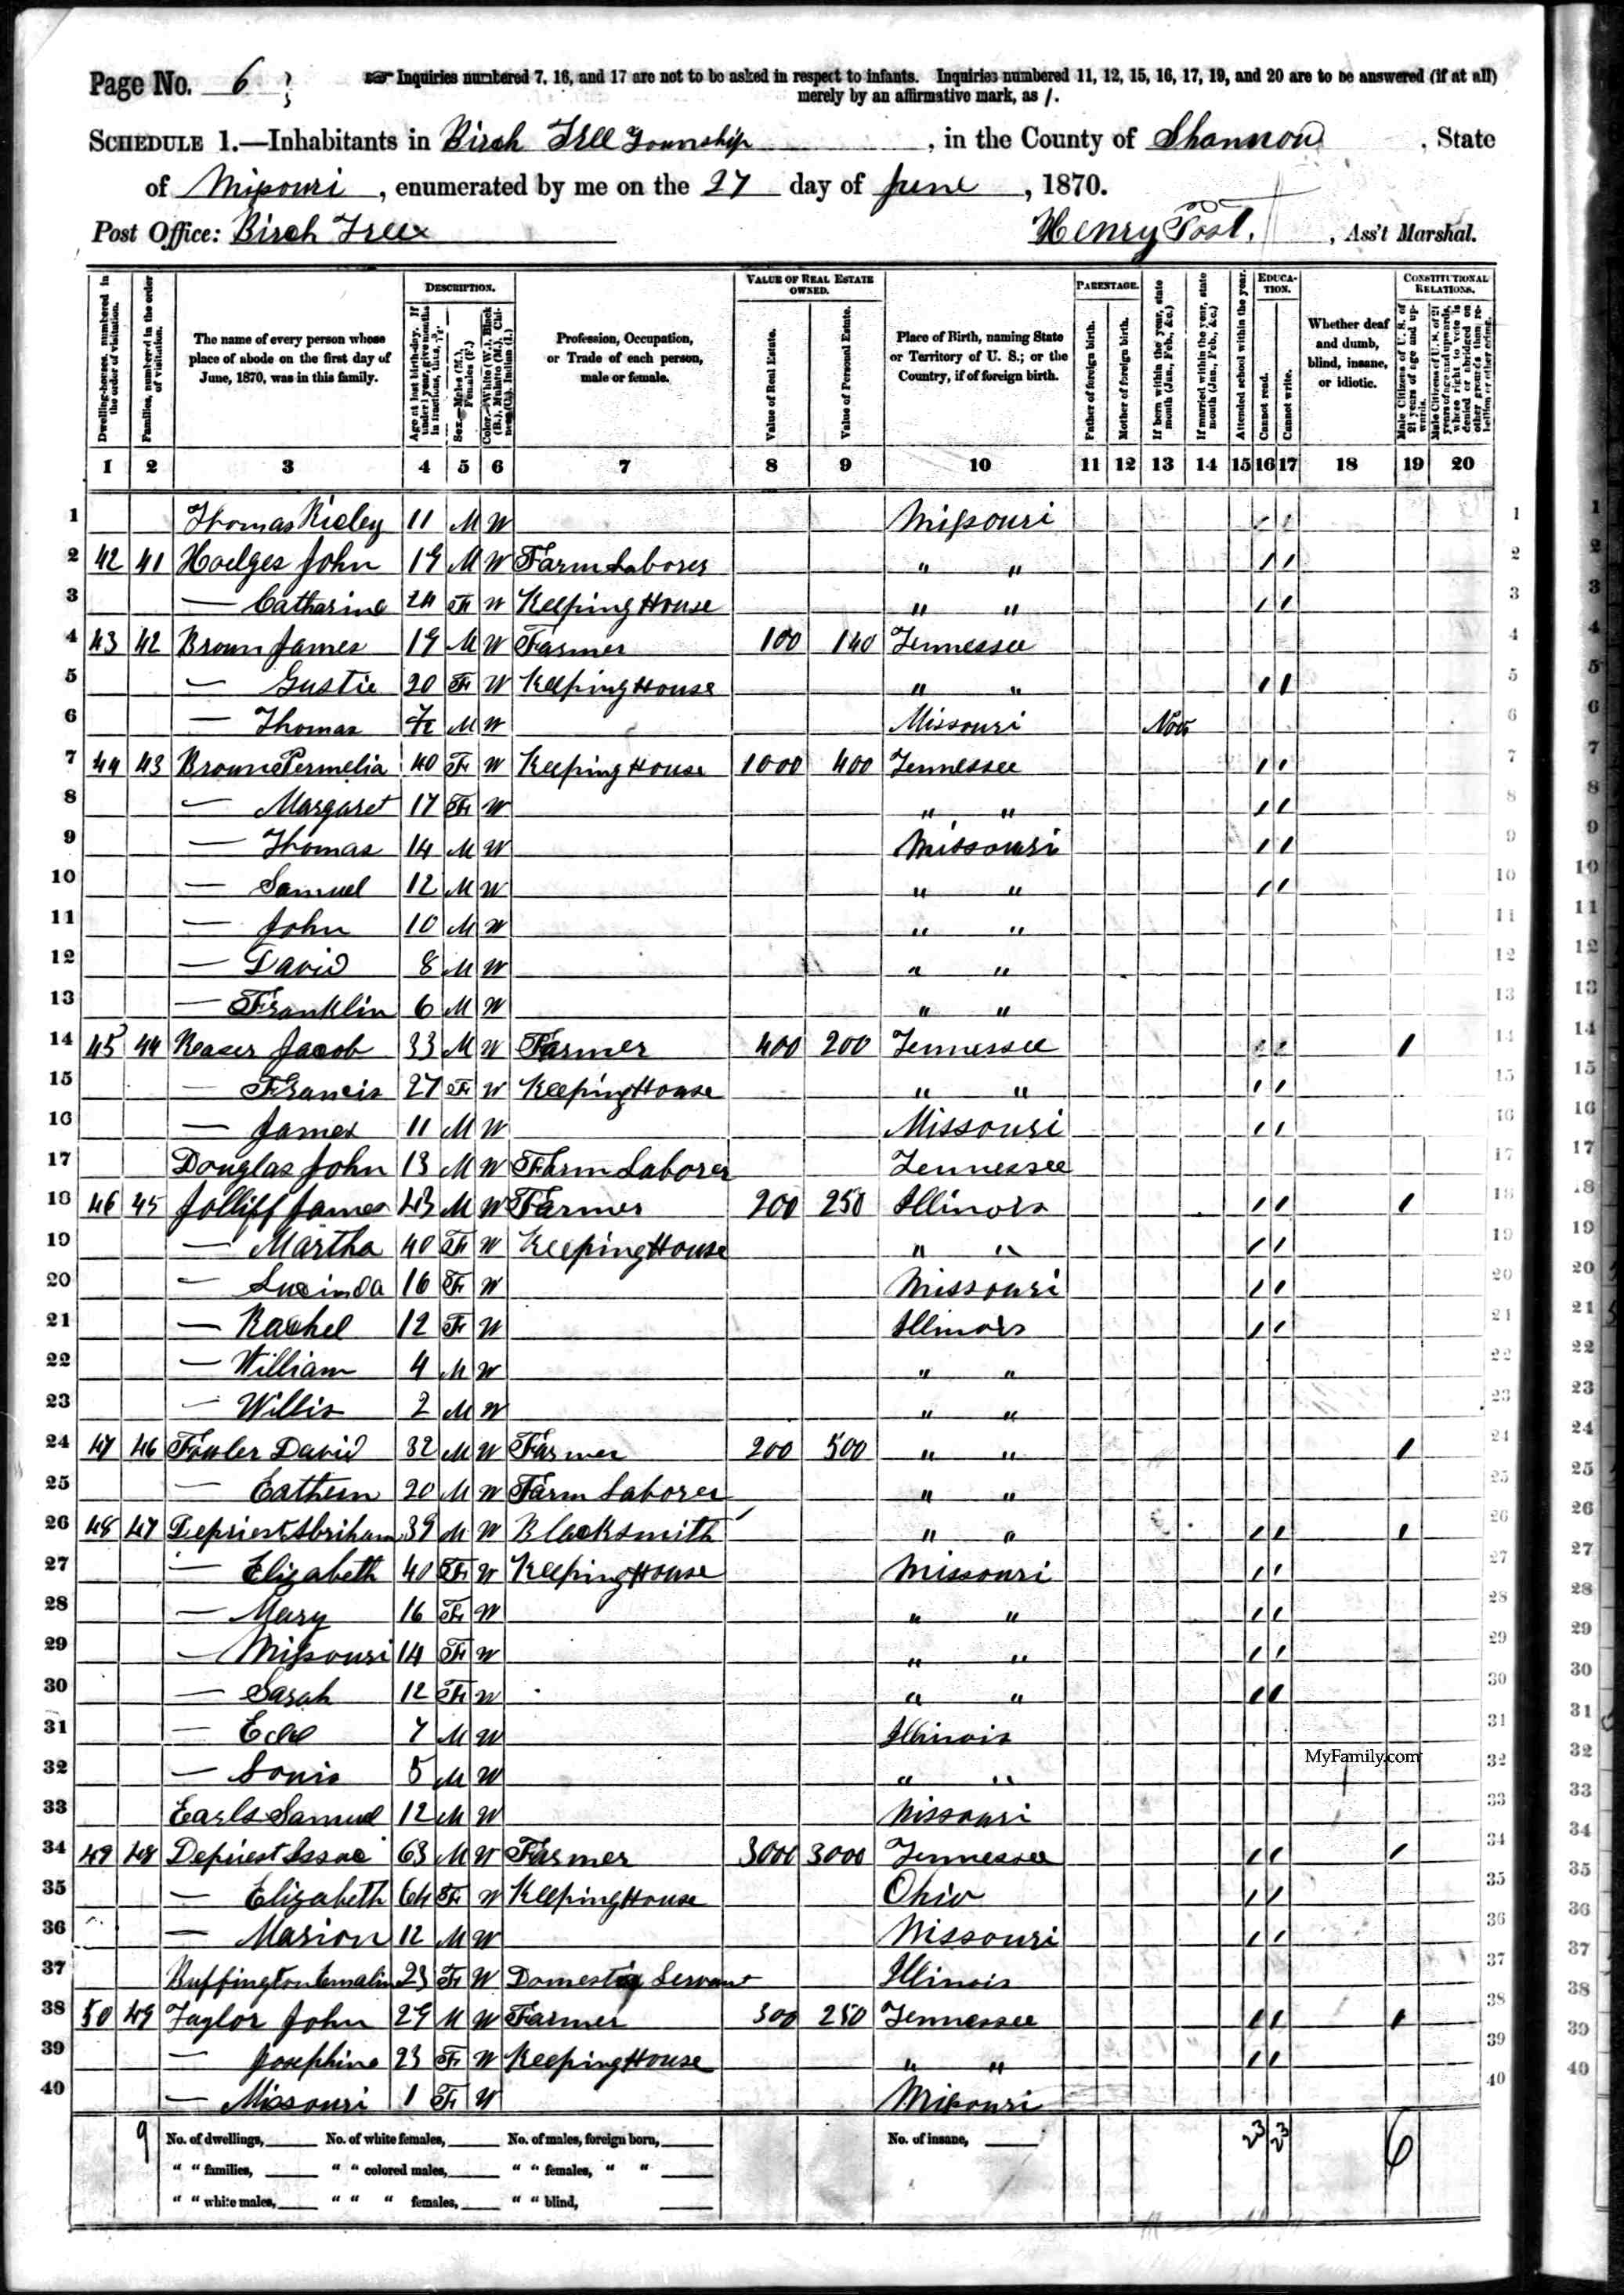 Page No. 6
Inquiries numbered 7, 16, and 17 are not to be asked in respect to infants. Inquiries numbered 11, 12, 15, 16, 17, 19, and 20 are to be answered (if at all)
merely by an affirmative mark, as /.
SCHEDULE 1.—Inhabitants in Birch Tree Township, in the County of Shannon, State
of Missouri, enumerated by me on the 27 day of June, 1870.
Post Office: Birch Tree Henry Post, Ass't Marshal.
Dwelling-houses, numbered in the order of visitation.
Families, numbered in the order of visitation.
The name of every person whose place of abode on the first day of June, 1870, was in this family.
DESCRIPTION.
Age at last birth-day. If under 1 year, give months in fractions, thus, 3/12.
Sex.—Males (M.), Females (F.)
Color.—White (W.), Black (B.), Mulatto (M.), Chinese (C.), Indian (I.)
Profession, Occupation, or Trade of each person, male or female.
VALUE OF REAL ESTATE OWNED.
Value of Real Estate.
Value of Personal Estate.
Place of Birth, naming State or Territory of U. S.; or the Country, if of foreign birth.
PARENTAGE.
Father of foreign birth.
Mother of foreign birth.
If born within the year, state month (Jan., Feb., &c.)
If married within the year, state month (Jan., Feb., &c.)
Attended school within the year.
EDUCATION.
Cannot read.
Cannot write.
Whether deaf and dumb, blind, insane, or idiotic.
CONSTITUTIONAL RELATIONS.
Male Citizens of U. S. of 21 years of age and upwards.
Male Citizens of U. S. of 21 years of age and upwards, where right to vote is denied or abridged on other grounds than rebellion or other crime.
1 2 3 4 5 6 7 8 9 10 11 12 13 14 15 16 17 18 19 20
1 Thomas 11 M W Missouri / / 1
2 42 41 Hodges John 19 M W Farm Laborer " " / / 2
3 — Catharine 24 F W Keeping House " " / / 3
4 43 42 Brown James 19 M W Farmer 100 140 Tennessee 4
5 — Gustie 20 F W Keeping House " " / / 5
6 — Thomas M W Missouri Nov 6
7 44 43 Brown Permelia 40 F W Keeping House 1000 400 Tennessee / / 7
8 — Margaret 17 F W " " / / 8
9 — Thomas 14 M W Missouri / / 9
10 — Samuel 12 M W " " / / 10
11 — John 10 M W " " 11
12 — David 8 M W " " 12
13 — Franklin 6 M W " " 13
14 45 44 Reaser Jacob 33 M W Farmer 400 200 Tennessee / / / 14
15 — Francis 27 F W Keeping House " " / / 15
16 — James 11 M W Missouri / / 16
17 Douglas John 13 M W Farm Laborer Tennessee 17
18 46 45 Jolliff James 43 M W Farmer 200 250 Illinois / / / 18
19 — Martha 40 F W Keeping House " " / / 19
20 — Lucinda 16 F W Missouri / / 20
21 — Rachel 12 F W Illinois / / 21
22 — William 4 M W " " 22
23 — Willis 2 M W " " 23
24 47 46 Fowler David 32 M W Farmer 200 500 " " / 24
25 — Eathern 20 M W Farm Laborer " " 25
26 48 47 Depriest Abriham 39 M W Blacksmith " " / / / 26
27 — Elizabeth 40 F W Keeping House Missouri / / 27
28 — Mary 16 F W " " / / 28
29 — Missouri 14 F W " " / / 29
30 — Sarah 12 F W " " / / 30
31 — 7 M W Illinois 31
32 — Louis 5 M W " " MyFamily.com 32
33 Earls Samuel 12 M W Missouri 33
34 49 48 Depriest Issac 63 M W Farmer 3000 3000 Tennessee / / / 34
35 — Elizabeth 64 F W Keeping House Ohio / / 35
36 — Marion 12 M W Missouri / / 36
37 Buffington Emaline 23 F W Domestic Servant Illinois 37
38 50 49 Taylor John 29 M W Farmer 300 250 Tennessee / / / 38
39 — Josephine 23 F W Keeping House " " / / 39
40 — Missouri 1 F W Missouri 40
9 No. of dwellings, No. of white females, No. of males, foreign born, No. of insane, 23 23 6
" " families, " " colored males, " " females, " "
" " white males, " " " females, " " blind,